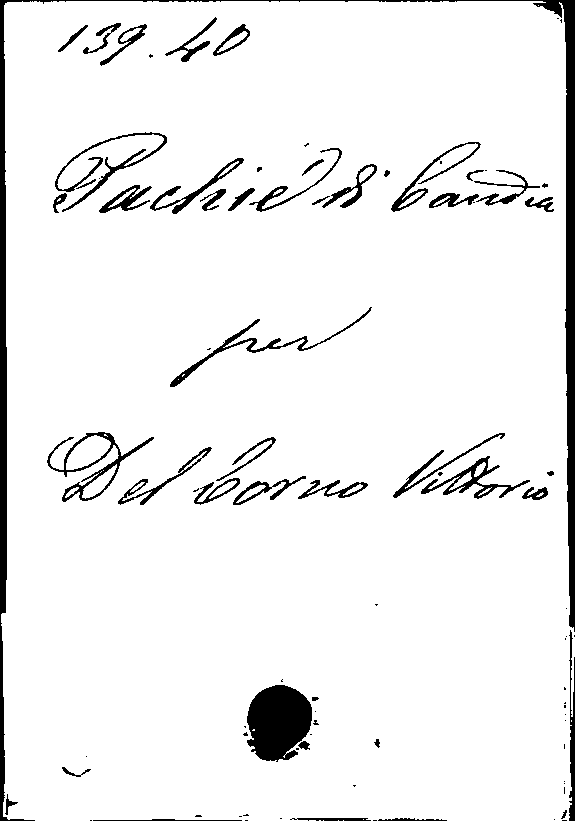 139.40
Pachié di Candia
per
Del Corno Vittorio